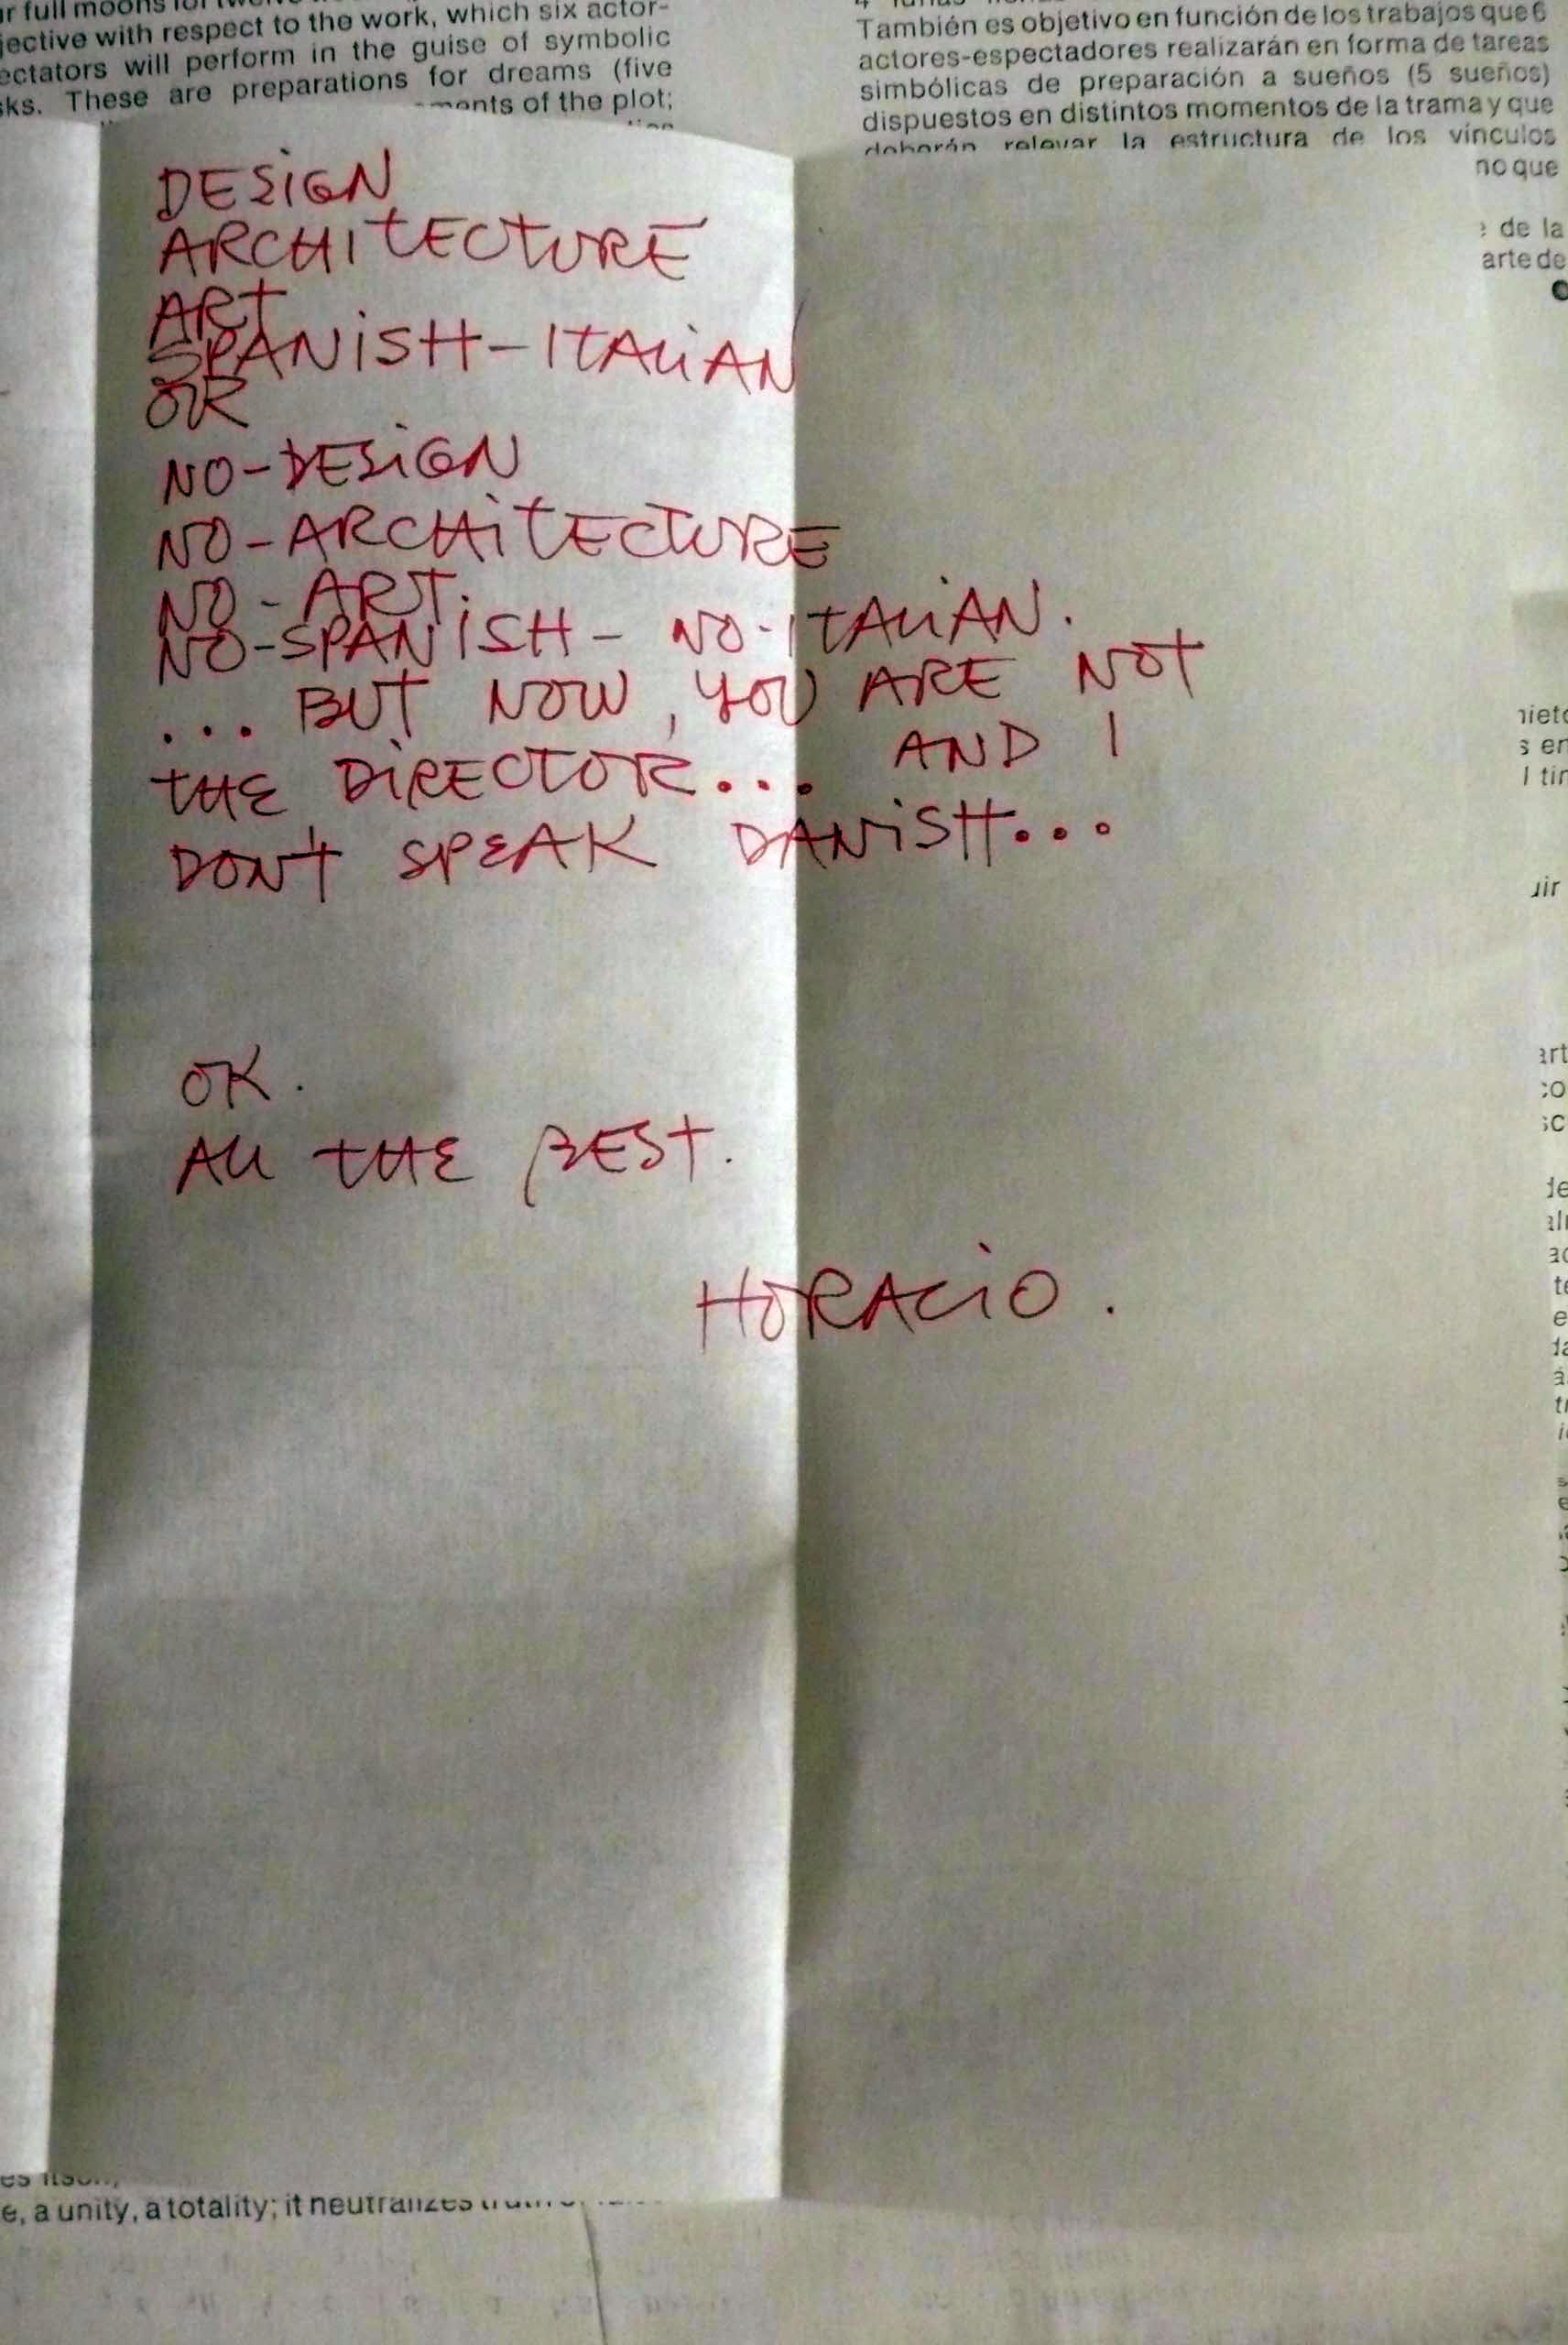 full moons for
jective with respect to the work, which six actor-
ectators will perform in the guise of symbolic
sks. These are preparations for dreams (five
ments of the plot;
También es objetivo en función de los trabajos que 6
actores-espectadores realizarán en forma de tareas
simbólicas de preparación a sueños (5 sueños)
dispuestos en distintos momentos de la trama y que
deberán relevar la estructura de los vínculos
no que
de la
arte de
DESIGN
ARCHITECTURE
ART
SPANISH-ITALIAN
OR
NO-DESIGN
NO-ARCHITECTURE
NO-ART.
NO-SPANISH- NO-ITALIAN.
... BUT NOW, YOU ARE NOT
THE DIRECTOR... AND I
DON'T SPEAK DANISH...
OK.
ALL THE BEST.
HORACIO.
e, a unity, a totality; it neutralizes